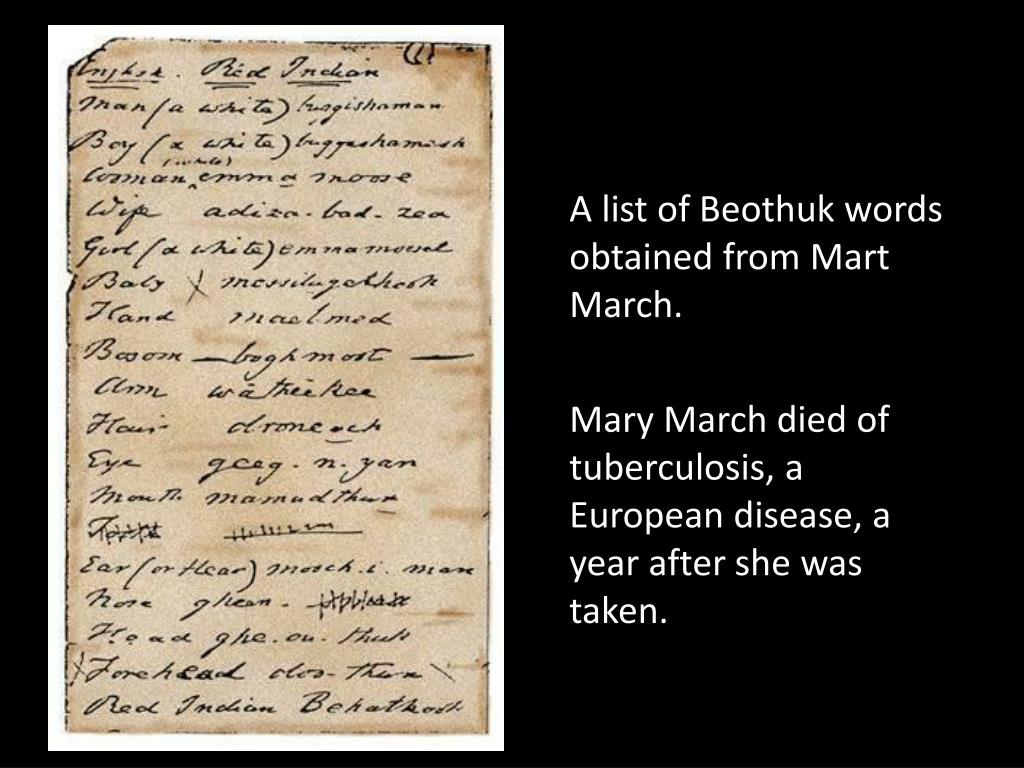 English. Red Indian
Man (a white) buggishaman
Boy (a white) buggeshamesh
(white)
Woman emma moose
Wife adiza-bad-zea
Girl (a white) emmamoosel
Baby X
Hand maelmed
Bosom — boghmoot —
Arm watheekee
Hair droneeek
Eye geeg.n.yan
Mouth mamudthun
Ear (or Hear) mooch.i.man
Nose gheen.
Head ghe.ou.thuk
Forehead doo-thun
Red Indian Behathook
A list of Beothuk words
obtained from Mart
March.
Mary March died of
tuberculosis, a
European disease, a
year after she was
taken.